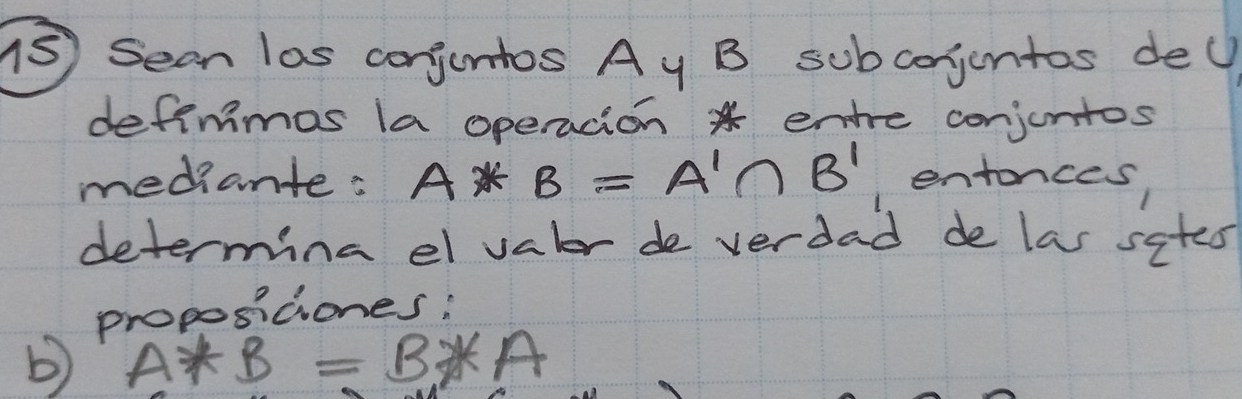 15) Sean los conjuntos A y B subconjuntos de U,
definimos la operación * entre conjuntos
mediante: A * B = A' ∩ B', entonces,
determina el valor de verdad de las sgtes
proposiciones:
b) A * B = B * A